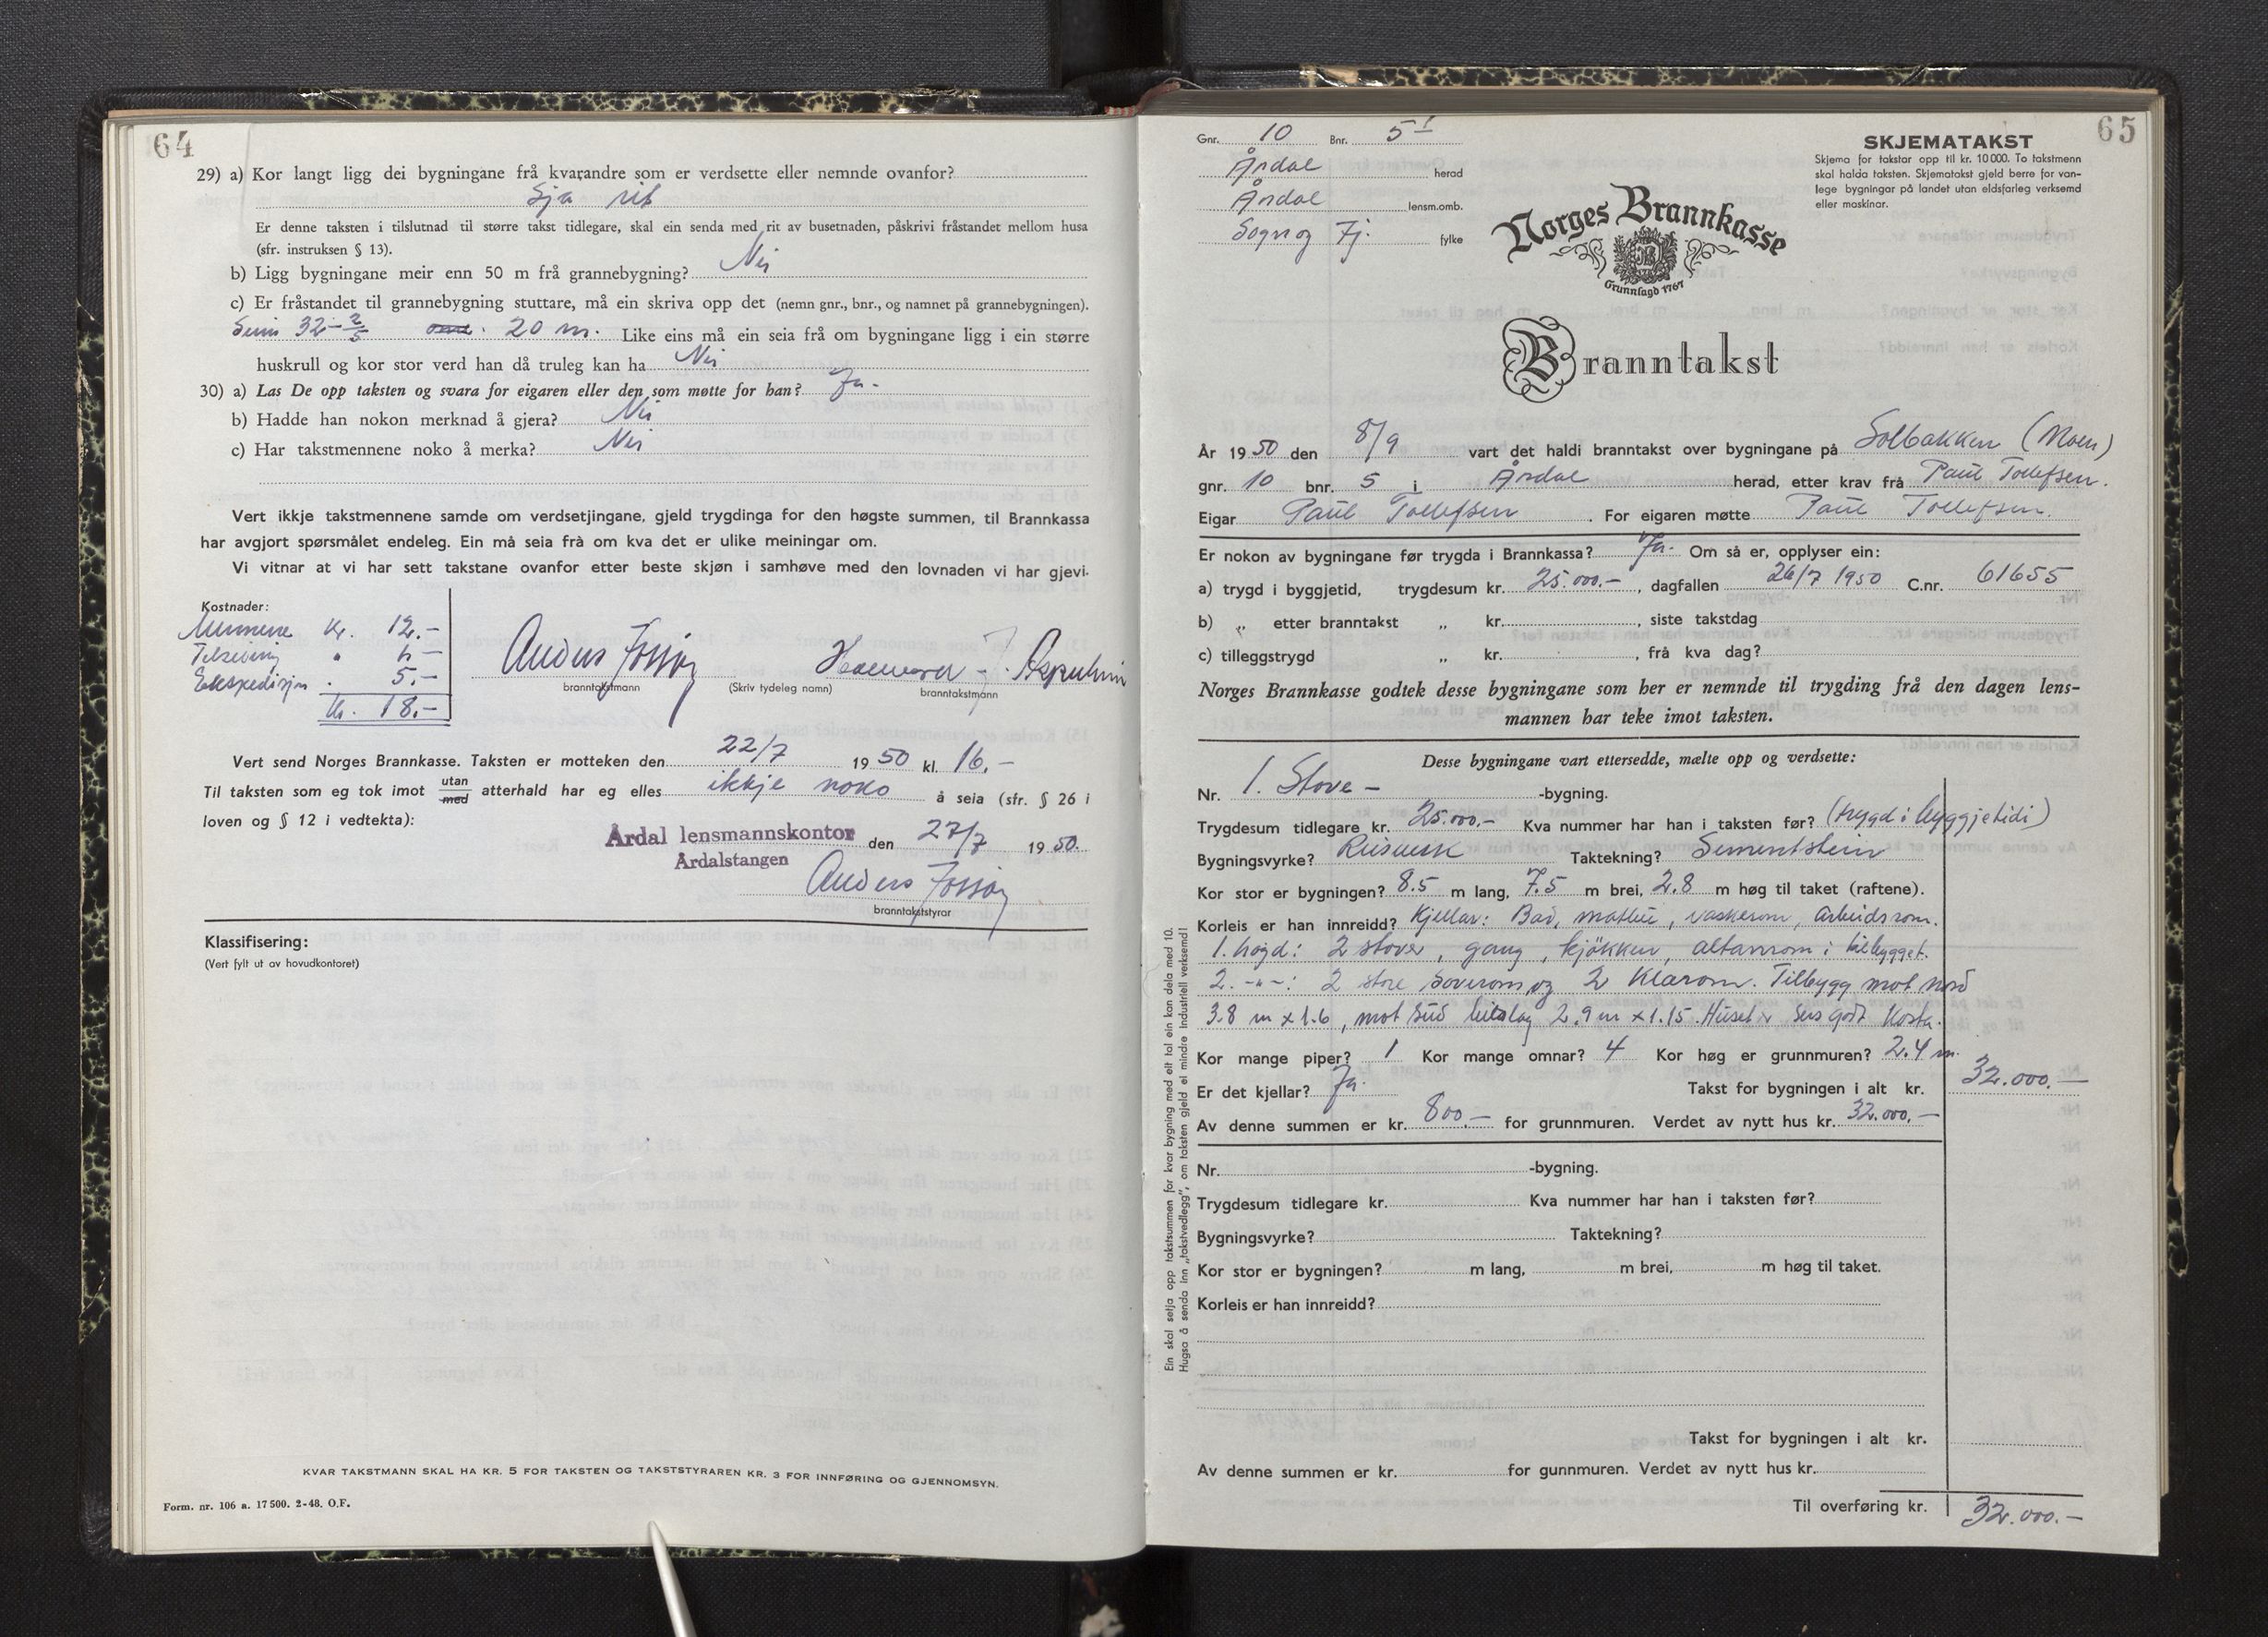 64
29) a) Kor langt ligg dei bygningane frå kvarandre som er verdsette eller nemnde ovanfor?
Sjå rit
Er denne taksten i tilslutnad til større takst tidlegare, skal ein senda med rit av busetnaden, påskrivi fråstandet mellom husa
(sfr. instruksen § 13).
b) Ligg bygningane meir enn 50 m frå grannebygning? Nei
c) Er fråstandet til grannebygning stuttare, må ein skriva opp det (nemn gnr., bnr., og namnet på grannebygningen).
32 - 2/5 20 m. Like eins må ein seia frå om bygningane ligg i ein større
huskrull og kor stor verd han då truleg kan ha Nei
30) a) Las De opp taksten og svara for eigaren eller den som møtte for han? Ja -
b) Hadde han nokon merknad å gjera? Nei
c) Har takstmennene noko å merka? Nei
Vert ikkje takstmennene samde om verdsetjingane, gjeld trygdinga for den høgste summen, til Brannkassa
har avgjort spørsmålet endeleg. Ein må seia frå om kva det er ulike meiningar om.
Vi vitnar at vi har sett takstane ovanfor etter beste skjøn i samhøve med den lovnaden vi har gjevi.
Kostnader:
Mennene kr. 12.-
5.-
Ekspedisjon
Kr. 18.-
Anders
branntakstmann
(Skriv tydeleg namn)
branntakstmann
Vert send Norges Brannkasse. Taksten er motteken den 22/7 1950 kl. 16.-
Til taksten som eg tok imot utan/med atterhald har eg elles ikkje noko å seia (sfr. § 26 i
loven og § 12 i vedtekta):
Årdal lensmannskontor den 27/7 1950.
Årdalstangen
Anders
branntakststyrar
Klassifisering:
(Vert fylt ut av hovudkontoret)
KVAR TAKSTMANN SKAL HA KR. 5 FOR TAKSTEN OG TAKSTSTYRAREN KR. 3 FOR INNFØRING OG GJENNOMSYN.
Form. nr. 106 a. 17500. 2-48. O.F.
65
Gnr. 10 Bnr. 5
Årdal herad
Årdal lensm.omb.
Sogn og Fj. fylke
SKJEMATAKST
Skjema for takstar opp til kr. 10 000. To takstmenn
skal halda taksten. Skjematakst gjeld berre for van-
lege bygningar på landet utan eldsfarleg verksemd
eller maskinar.
Norges Brannkasse
Grunnlagd 1767
Branntakst
År 1950 den 8/9 vart det haldi branntakst over bygningane på Solbakken (Moen)
gnr. 10 bnr. 5 i Årdal herad, etter krav frå Paul Tollefsen.
Eigar Paul Tollefsen. For eigaren møtte Paul Tollefsen.
Er nokon av bygningane før trygda i Brannkassa? Ja. Om så er, opplyser ein:
a) trygd i byggjetid, trygdesum kr. 25.000.-, dagfallen 26/7 1950 C.nr. 61655
b) „ etter branntakst „ kr. , siste takstdag
c) tilleggstrygd „ kr. , frå kva dag?
Norges Brannkasse godtek desse bygningane som her er nemnde til trygding frå den dagen lens-
mannen har teke imot taksten.
Desse bygningane vart ettersedde, mælte opp og verdsette:
Nr. 1. Stove - -bygning.
Trygdesum tidlegare kr. 25.000.- Kva nummer har han i taksten før? (trygd i byggjetidi)
Bygningsvyrke? Reisverk Taktekning? Sementstein
Kor stor er bygningen? 8.5 m lang, 7.5 m brei, 2.8 m høg til taket (raftene).
Korleis er han innreidd? Kjellar: Bad, matbu, vaskerom, Arbeidsrom.
1. høgd: 2 stover, gang, kjøkken, altanrom i tilbygget.
2. -"-: 2 store soverom og 2 Klárom. Tilbygg mot nord
3.8 m x 1.6, mot Sud bislag 2.9 m x 1.15. Huset
Kor mange piper? 1 Kor mange omnar? 4 Kor høg er grunnmuren? 2.4 m.
Er det kjellar? Ja. Takst for bygningen i alt kr. 32.000.-
Av denne summen er kr. 800.- for grunnmuren. Verdet av nytt hus kr. 32.000,-
Nr. -bygning.
Trygdesum tidlegare kr. Kva nummer har han i taksten før?
Bygningsvyrke? Taktekning?
Kor stor er bygningen? m lang, m brei, m høg til taket.
Korleis er han innreidd?
Takst for bygningen i alt kr.
Av denne summen er kr. for gunnmuren. Verdet av nytt hus kr.
Til overføring kr. 32.000.-
Ein skal setja opp takstsummen for kvar bygning med eit tal ein kan dela med 10.
Hugsa å senda inn „takstvedlegg", om taksten gjeld ei mindre industriell verksemd!